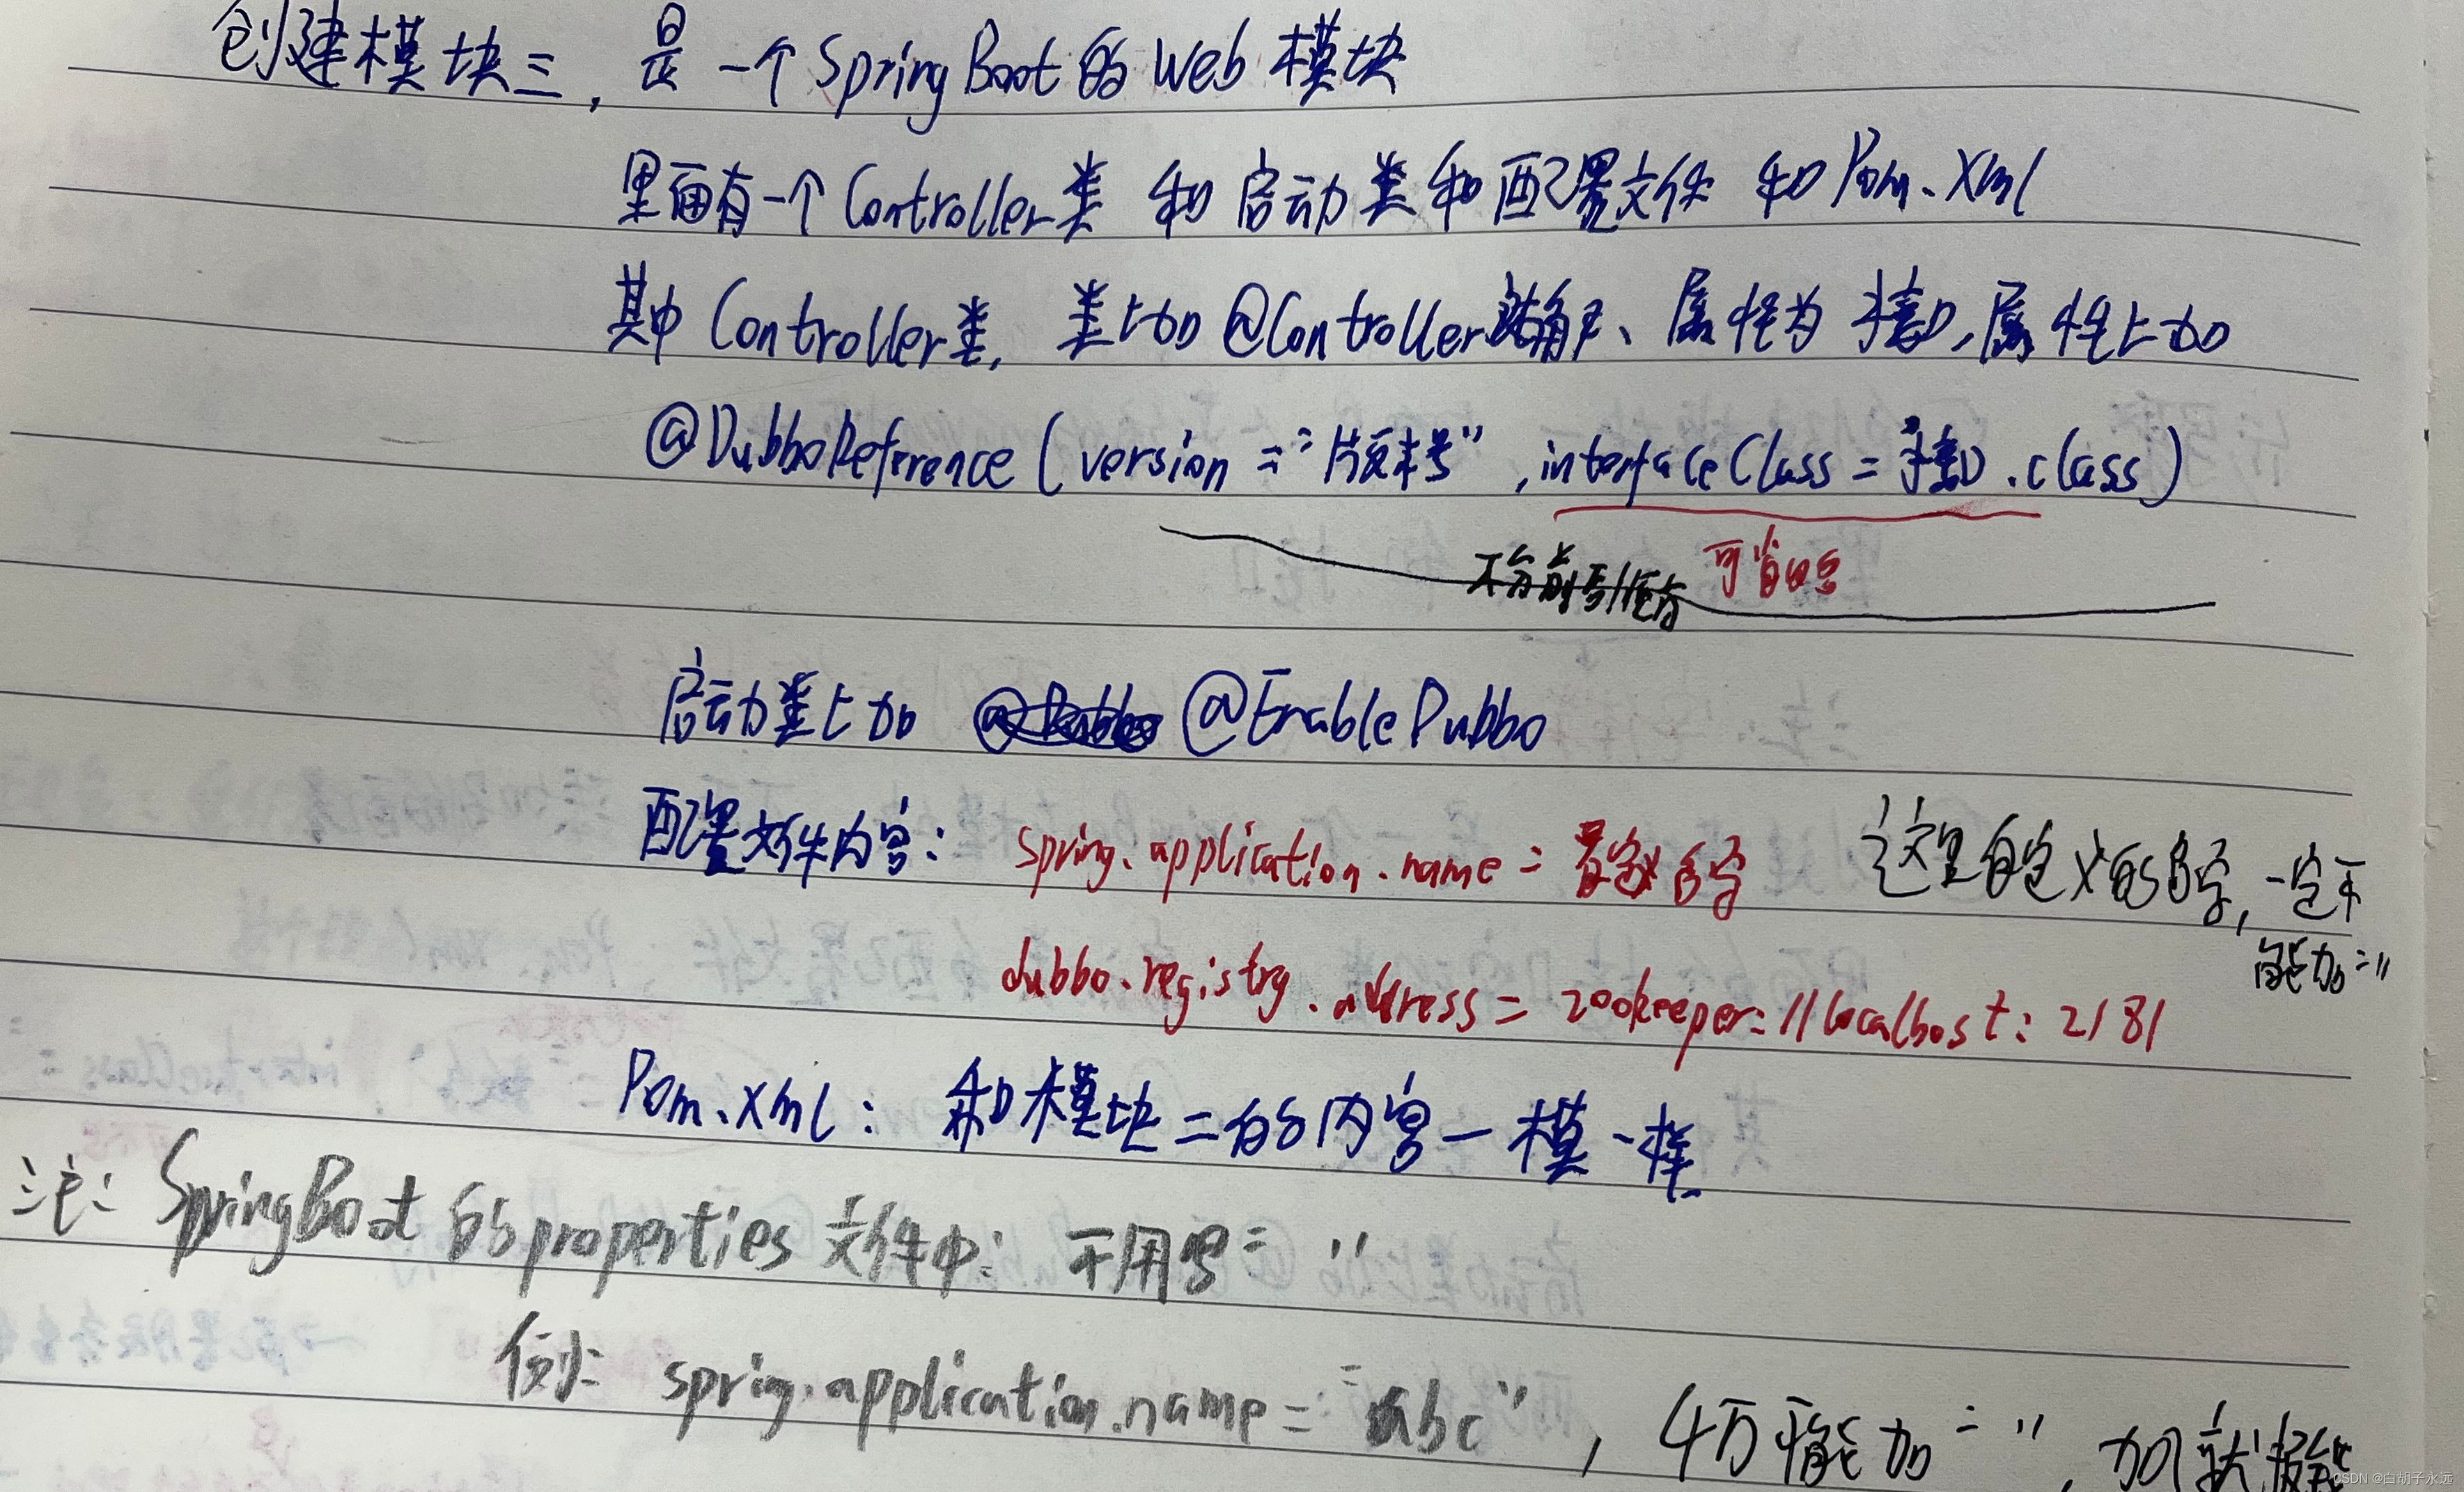 创建模块三，是一个SpringBoot的Web模块
里面有一个Controller类 和启动类和配置文件 和Pom.xml
其中Controller类，类上加@Controller注解、属性为接口，属性上加
@DubboReference(version="版本号",interfaceClass=接口.class)
可省略
启动类上加 @EnableDubbo
配置文件内容：spring.application.name=名字 这里自定义的名字，一定不
能加""
dubbo.registry.address=zookeeper://localhost:2181
Pom.xml：和模块二的内容一模一样
注：SpringBoot的properties文件中：不用写""
例：spring.application.name="abc"，千万不能加""，加就
CSDN @白胡子永远